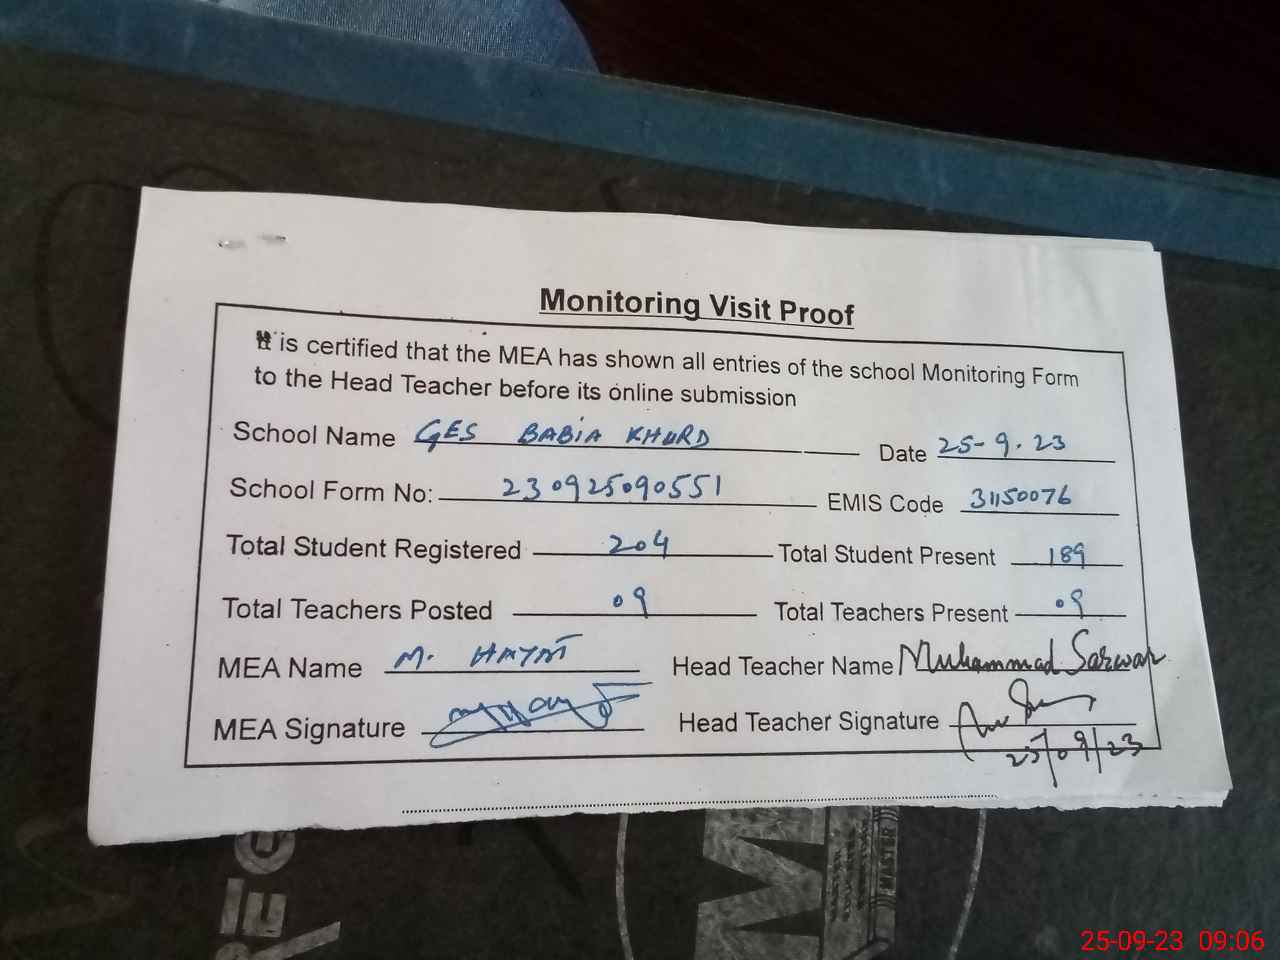 Monitoring Visit Proof
It is certified that the MEA has shown all entries of the school Monitoring Form
to the Head Teacher before its online submission
School Name GES BABIA KHURD Date 25-9.23
School Form No: 230925090551 EMIS Code 31150076
Total Student Registered 204 Total Student Present 189
Total Teachers Posted 09 Total Teachers Present 09
MEA Name M. HAYAT Head Teacher Name Muhammad Sarwar
MEA Signature Head Teacher Signature
25/09/23
MASTER
25-09-23 09:06